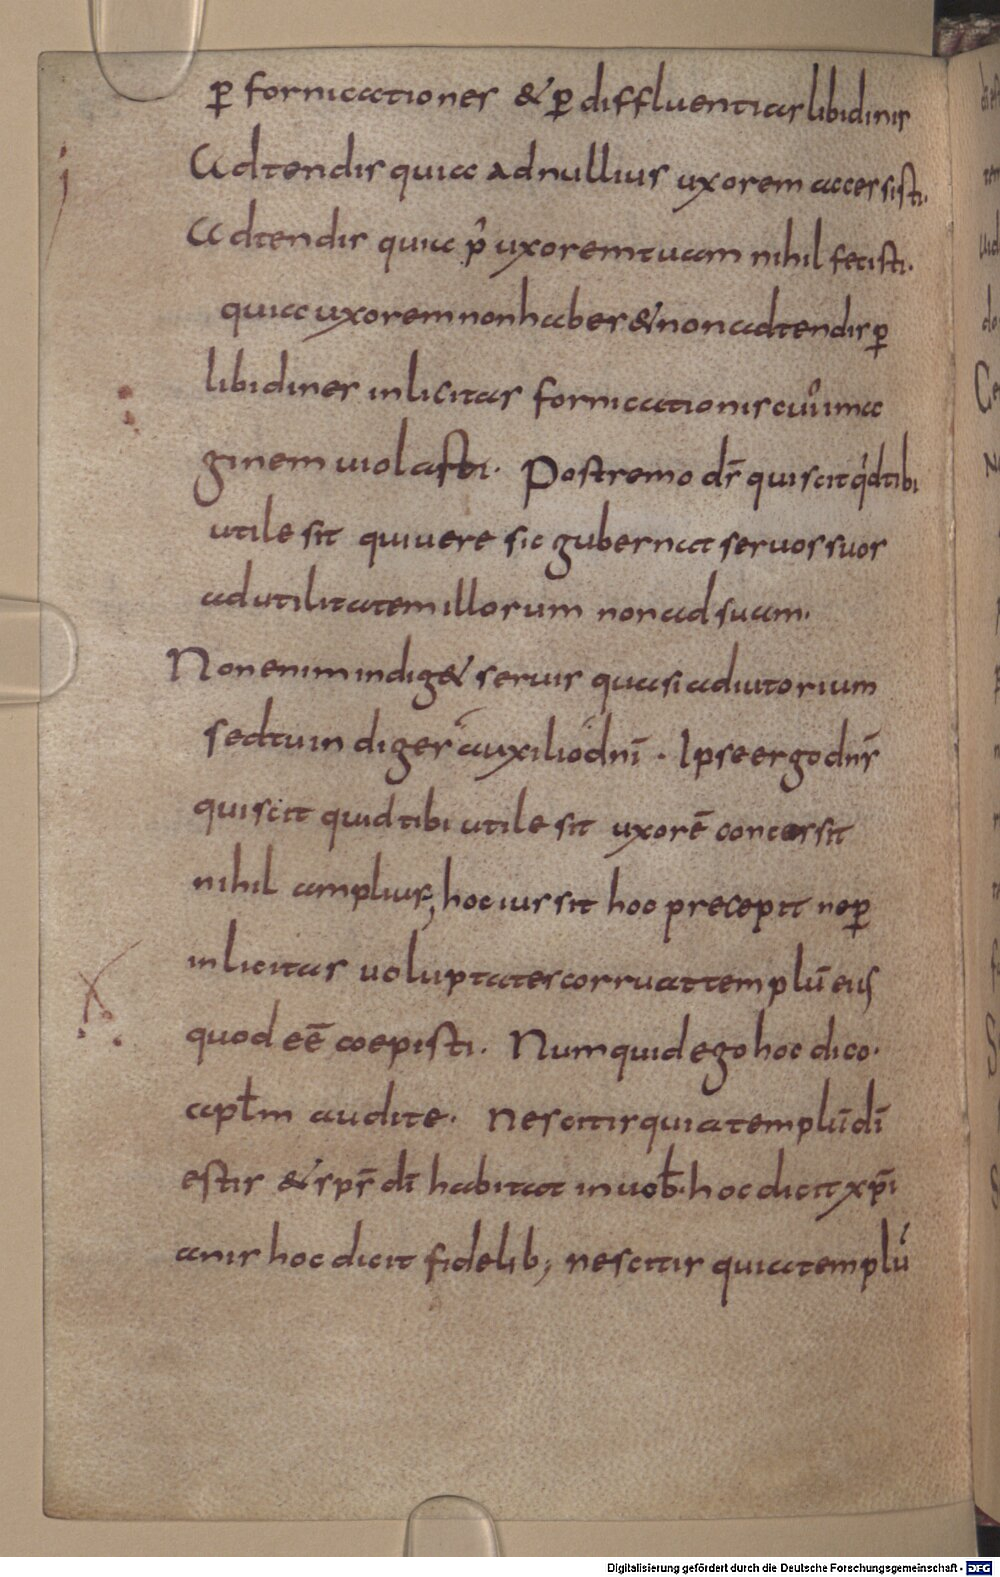 ꝑ fornicationes & ꝑ diffluentias libidinis
Adtendis quia ad nullius uxorem accessisti.
Adtendis quia p̂ uxorem tuam nihil fecisti.
quia uxorem non habes & non adtendis ꝑ
libidines inlicitas fornicationis
ginem uiolasti. Postremo dr̄ qui scit q'd tibi
utile sit qui uere sic gubernat seruos suos
ad utilitatem illorum non ad suam.
Non enim indig& seruis quasi adiutorium
sed tu indiges auxilio dn̄i . Ipse ergo dn̄s
qui scit quid tibi utile sit uxorē concessit
nihil amplius, hoc iussit hoc precepit ne ꝑ
inlicitas uoluptates corruat templū eius
quod eē coepisti. Numquid ego hoc dico.
apłm audite. Nescitis quia templū dī
estis & sps̄ dī habitat in uob̵. hoc dicit xp̄i
anis hoc dicit fidelib; nescitis quia templū
Digitalisierung gefördert durch die Deutsche Forschungsgemeinschaft - DFG